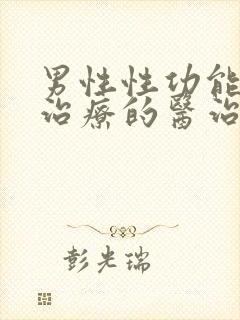 男性性功能
治療的醫治
彭光瑞